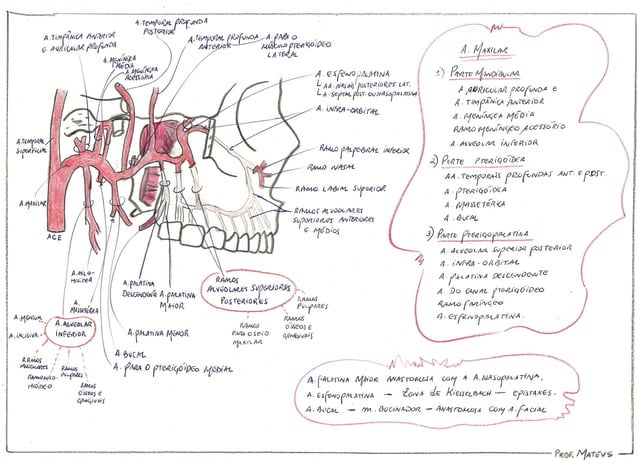 A. TIMPÂNICA ANTERIOR
E AURICULAR PROFUNDA
A. TEMPORAL PROFUNDA
POSTERIOR
A. MENÍNGEA
MÉDIA
A. MENÍNGEA
ACESSÓRIA
A. TEMPORAL PROFUNDA
ANTERIOR
A. PARA O
MÚSCULO PTERIGÓIDEO
LATERAL
A. ESFENOPALATINA
A. INFRA-ORBITAL
RAMO PALPEBRAL INFERIOR
RAMO NASAL
RAMO LABIAL SUPERIOR
RAMOS ALVEOLARES
SUPERIORES ANTERIORES
E MÉDIOS
A. TEMPORAL
SUPERFICIAL
A. MAXILAR
ACE
A. MILO-
HIÓIDEA
A.
MASSETÉRICA
A. MENTUAL
A. INCISIVA
A. ALVEOLAR
INFERIOR
RAMOS
PULPARES
RAMOS
ÓSSEOS E
GENGIVAIS
A. PALATINA
DESCENDENTE
A. PALATINA
MAIOR
A. PALATINA MENOR
A. BUCAL
A. PARA O PTERIGÓIDEO MEDIAL
RAMOS
ALVEOLARES SUPERIORES
POSTERIORES
RAMOS
PARA O SEIO
MAXILAR
RAMOS
ÓSSEOS E
GENGIVAIS
RAMOS
PULPARES
A. MAXILAR
1) PARTE MANDIBULAR
A. AURICULAR PROFUNDA E
A. TIMPÂNICA ANTERIOR
A. MENÍNGEA MÉDIA
RAMO MENÍNGEO ACESSÓRIO
A. ALVEOLAR INFERIOR
2) PARTE PTERIGÓIDEA
AA. TEMPORAIS PROFUNDAS ANT. E POST.
A. PTERIGÓIDEA
A. MASSETÉRICA
A. BUCAL
3) PARTE PTERIGOPALATINA
A. ALVEOLAR SUPERIOR POSTERIOR
A. INFRA-ORBITAL
A. PALATINA DESCENDENTE
A. DO CANAL PTERIGÓIDEO
RAMO FARÍNGEO
A. ESFENOPALATINA.
A. PALATINA MAIOR ANASTOMOSA COM A A. NASOPALATINA.
A. ESFENOPALATINA — ZONA DE KIESSELBACH — EPISTAXES.
A. BUCAL — M. BUCINADOR — ANASTOMOSA COM A. FACIAL
PROF. MATEUS